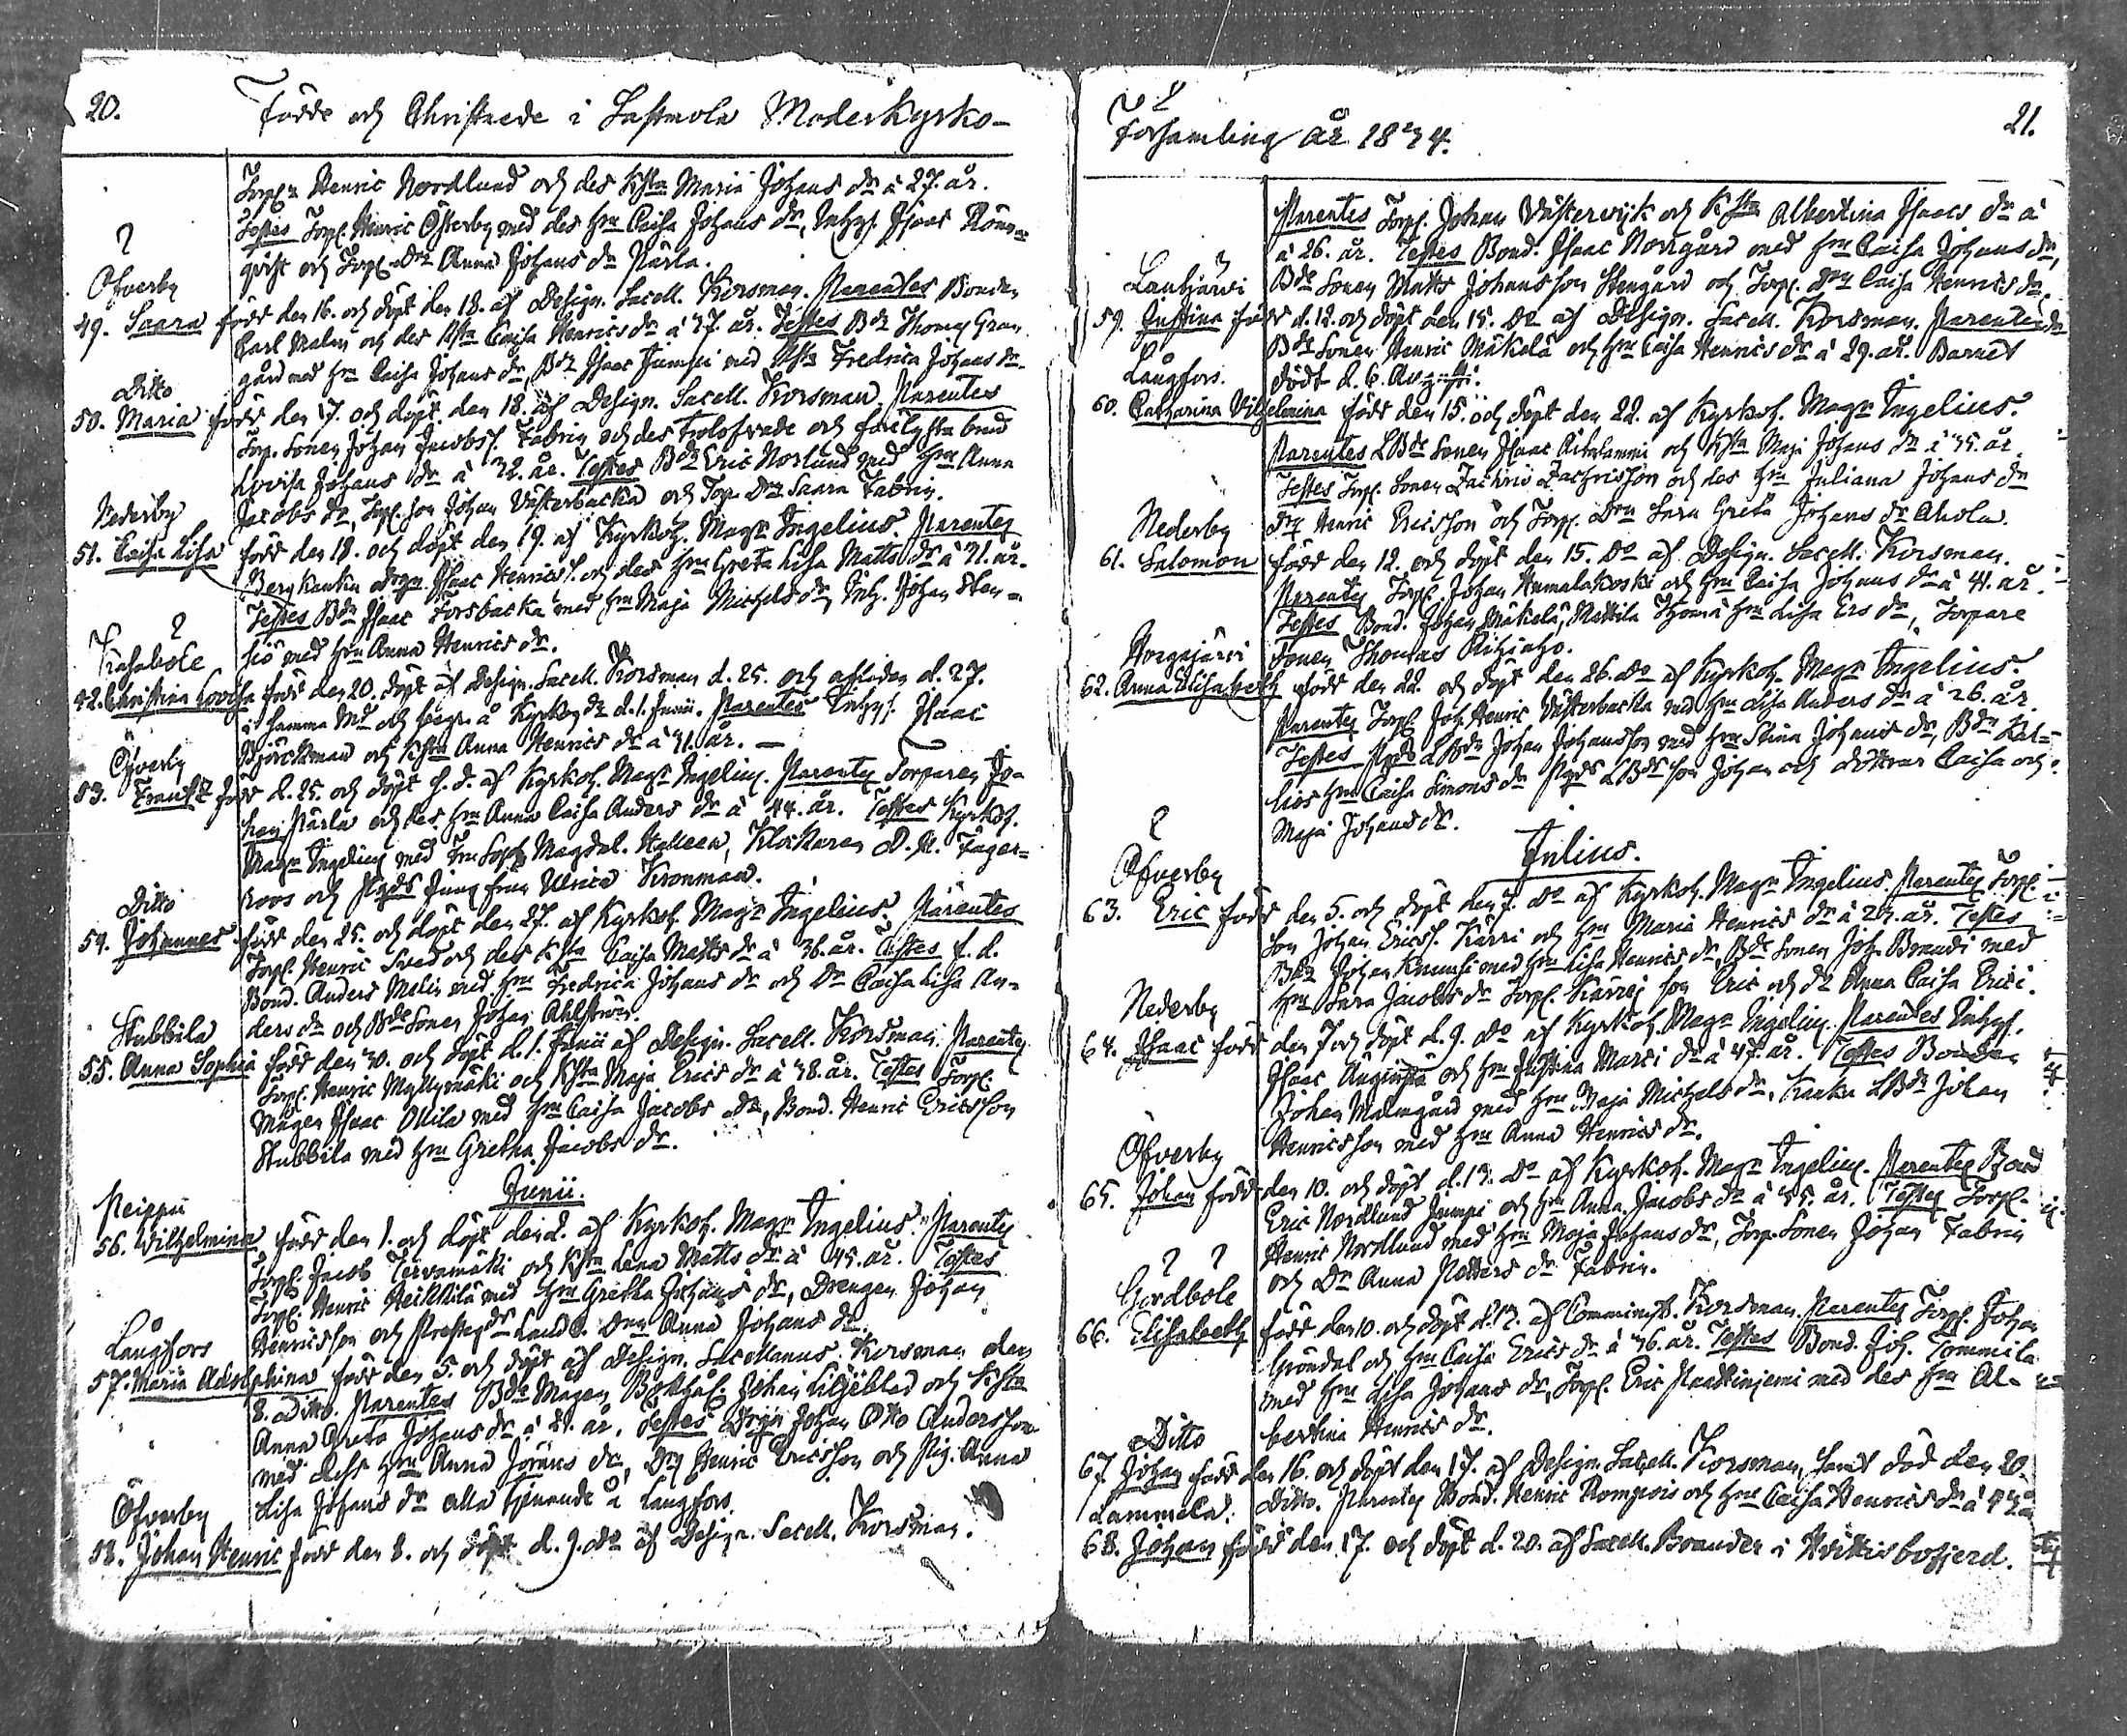 20.
Födde och Christnade i Lastmola Moderkyrko-
Torp:n Henric Nordlund och des Hsta Maria Johans dr à 27. år.
Testes Torp. Henric Österby med des Hru Caisa Johans dr, Inhys. Isaac Rönn-
qvist och Torp. Drn Anna Johans dr Pärla.
Öfverby
49. Saara född den 16. och döpt den 18. af Design. Sacell. Korsman. Parentes Bonden
Carl Malm och des Hsta Caisa Henrics dr à 37. år. Testes Bdn Thomas Gran
gård med Hru Caisa Johans dr, Bdn Isaac Jumpi med Hsta Fredrica Johans dr.
Ditto
50. Maria född den 17. och döpt den 18. af Design. Sacell. Korsman. Parentes
Torp. Sonen Johan Jacobs. Fabrin och des trolofvade och
Lovisa Johans dr à 32. år. Testes Bdn Eric Norlund med Hru Anna
Jacobs dr, Torp. son Johan Västerbacka och Torp. Drn Saara Fabrin.
Nederby
51. Caisa Lisa född den 18. och döpt den 19. af Kyrkoh. Magr Ingelius. Parentes
Isaac Henrics. och des Hru Greta Lisa Matts dr à 31. år.
Testes Bdn Isaac Forsbacka med Hru Maja Michels dr, Inh. Johan Sten-
siö med Hru Anna Henrics dr.
Trasaböle
42. Christina Lovisa född den 20. döpt af Design. Sacell. Korsman d. 25. och afleden d. 27.
i samma Md och begr. å Kyrkog. d. 1. Junii. Parentes Inhys. Isaac
Björckman och Hstn Anna Henrics dr à 41. år. —
Öfverby
53. född d. 25. och döpt s. d. af Kyrkoh. Magr Ingelius. Parentes Torparen Jo-
han Pärla och des Hru Anna Caisa Anders dr à 44. år. Testes Kyrkoh.
Magr Ingelius med Fru Soph. Magdal. Helleen, Klockaren D. H. Fager-
roos och Jungfrun Ulrica Kronman.
Ditto
54. Johannes född den 25. och döpt den 27. af Kyrkoh. Magr Ingelius. Parentes
Torp. Henric Sved och des Hsta Caisa Matts dr à 36. år. Testes f. d.
Bond. Anders Melin med Hru Fredrica Johans dr och Dr Caisa Lisa An-
ders dr och Bde Sonen Johan Ahlström.
Stubbila
55. Anna Sophia född den 30. och döpt d. 1. Junii af Design. Sacell. Korsman. Parentes
Torp. Henric Myllymäki och Hsta Maja Erics dr à 38. år. Testes Torp.
Mågen Isaac Ollila med Hru Caisa Jacobs dr, Bond. Henric Ericsson
Stubbila med Hru Gretha Jacobs dr.
Junii.
Peippu
56. Wilhelmina född den 1. och döpt den 2. af Kyrkoh. Magr Ingelius. Parentes
Torp. Jacob Tervamäki och Hstru Lena Matts dr à 45. år. Testes
Torp. Henric Heikkilä med Hru Gretha Johans dr, Drengen Johan
Henricsson och Anna Johans dr.
Långfors
57. Maria Adolphina född den 5. och döpt af Design. Sacellanus Korsman den
8. Ditto. Parentes Bde Mågen Johan Liljeblad och Hsta
Anna Greta Johans dr à 21. år. Testes Drgn Johan Otto Andersson
med dess Hru Anna Jörans dr, Drg Henric Ericsson och Pig. Anna
Lisa Johans dr alla tjenande å Långfors.
Öfverby
58. Johan Henric född den 8. och döpt d. 9. do af Design. Sacell. Korsman.
21.
Församling År 1834.
Parentes Torp. Johan Västervijk och Hsta Albertina Isaacs dr à
à 26. år. Testes Bond. Isaac Norrgård med Hru Caisa Johans dr,
Bde Sonen Matts Johansson Stengård och Torp. Drn Caisa Henrics dr.
Lautjärvi
59. Justina född d. 12. och döpt den 15. do af Design. Sacell. Korsman. Parentes
Bde Sonen Henric Mäkelä och Hru Caisa Henrics dr à 29. år. Barnet
dödt d. 6. Augusti.
Långfors.
60. Catharina Vilhelmina född den 15. och döpt den 22. af Kyrkoh. Magr Ingelius.
Parentes LBde Sonen Isaac och Hsta Maja Johans dr à 35. år
Testes Torp. Sonen Zachris Zachrisson och des Hru Juliana Johans dr
Drg Henric Ericsson och Torp. Drn Sara Greta Johans dr Ahola.
Nederby
61. Salomon född den 12. och döpt den 15. do af Design. Sacell. Korsman.
Parentes Torp. Johan Humalakoski och Hru Caisa Johans dr à 41. år.
Testes Bond. Johan Mäkelä, Mattila Thomä Hru Lisa Ers dr, Torpare
Sonen Thomas
Norgajärvi
62. Anna Elisabeth född den 22. och döpt den 26. do af Kyrkoh. Magr Ingelius.
Parentes Torp. Joh. Henric Västerbacka med Hru Lisa Anders dr à 26. år.
Testes LBdn Johan Johansson med Hru Stina Johans dr, Bdn Kal-
lios Hru Caisa Simons dr LBde son Johan och dottren Caisa och
Maja Johans dr.
Julius.
Öfverby
63. Eric född den 5. och döpt den 7. do af Kyrkoh. Magr Ingelius. Parentes Torp.
Son Johan Ericss. Karri och Hru Maria Henrics dr à 23. år. Testes
Bdn Johan Knuusi med Hru Lisa Henrics dr, Bde Sonen Joh. Brandi med
Hru Sara Jacobs dr Torp. Karrej son Eric och dr Anna Caisa Erici.
Nederby
64. Isaac född den 7 och döpt d. 9. do af Kyrkoh. Magr Ingelius. Parentes Inhys.
Isaac och Hru Justina Marci dr à 47. år. Testes Bonden
Johan Malmgård med Hru Maja Michels dr, Kanku LBdn Johan
Henricsson med Hru Anna Henrics dr.
Öfverby
65. Johan född den 10. och döpt d. 13. do af Kyrkoh. Magr Ingelius. Parentes Bond
Eric Nordlund Jumpi och Hru Anna Jacobs dr à 35. år. Testes Torp.
Henric Nordlund med Hru Maja Johans dr, Torp. Sonen Johan Fabrin
och Dr Anna Petters dr Fabrin.
Gordböle
66. Elisabeth född den 10. och döpt d. 13. af Comminist. Korsman. Parentes Torp. Johan
Gröndal och Hru Caisa Erics dr à 36. år. Testes Bond. Joh. Tommila
med Hru Lisa Johans dr, Torp. Eric med des Hru Al-
bertina Henrics dr.
Ditto
67. Johan född den 16. och döpt den 17. af Design. Sacell. Korsman, samt död den 20.
Ditto. Parentes Bond. Henric Rompois och Hru Caisa Henrics dr à
Lammela.
68. Johan född den 17. och döpt d. 20. af Sacell. Brander i Hvittisbofjerd.